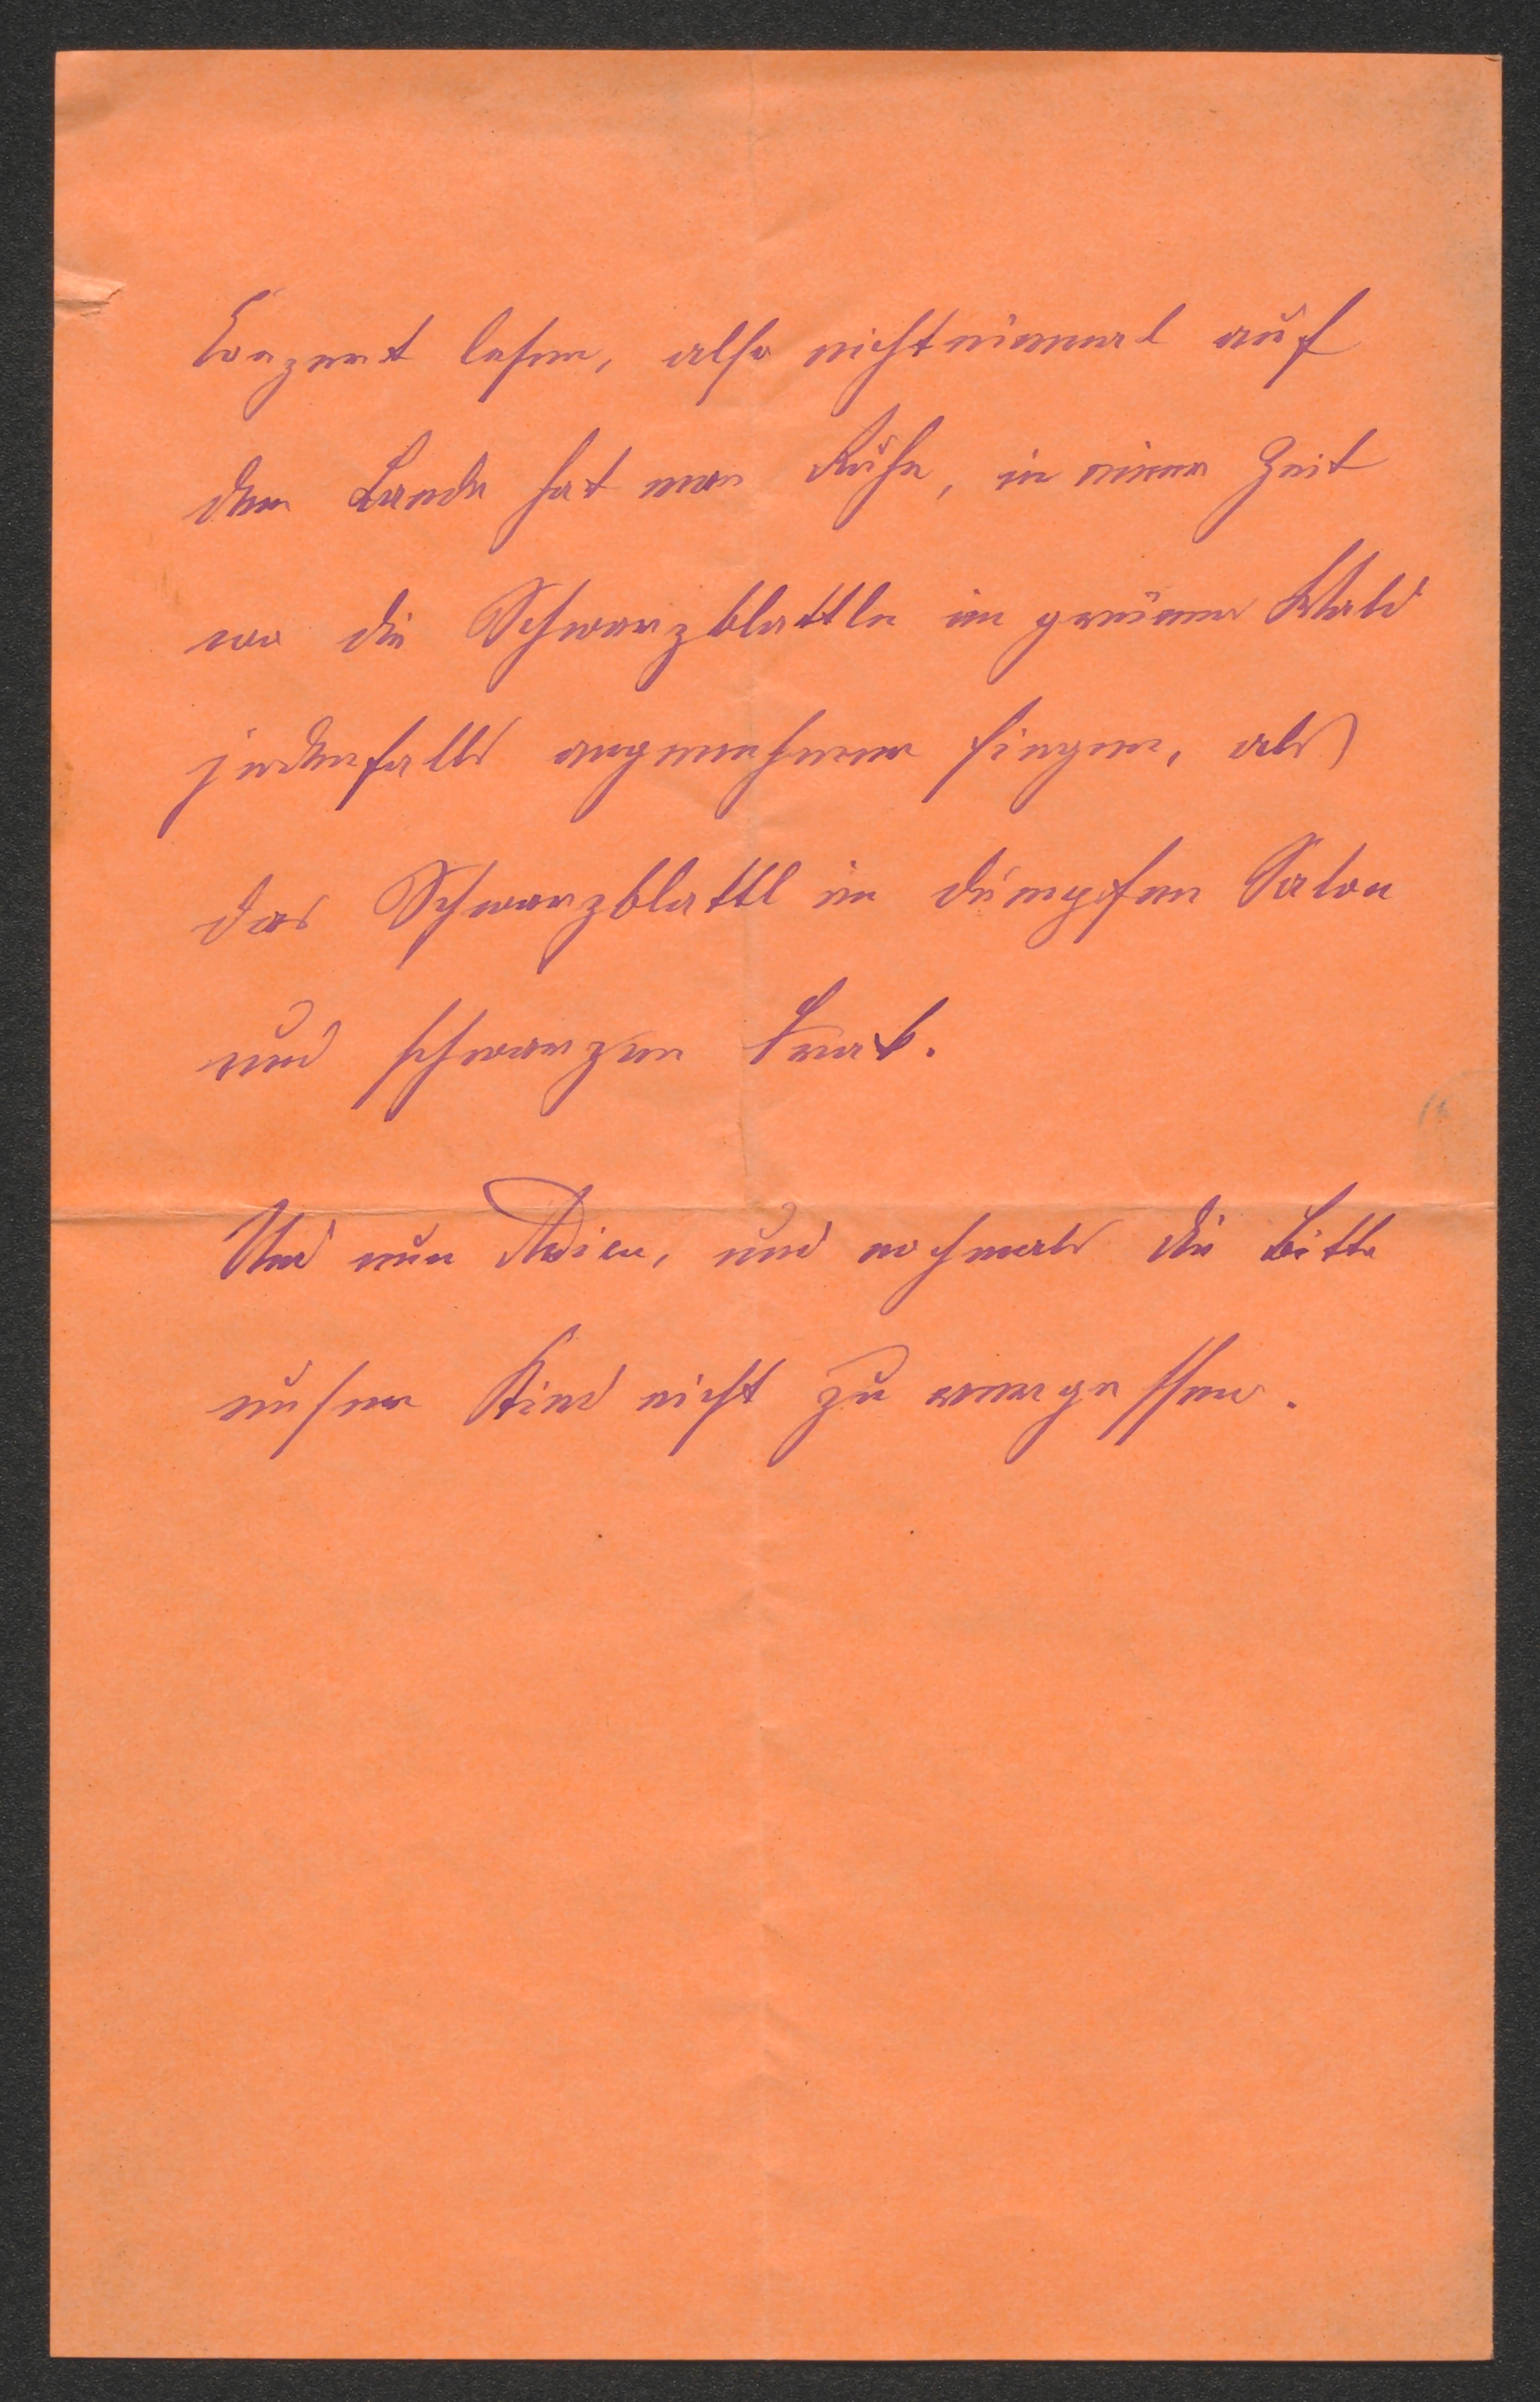 Conzert lesen, also nichteinmal auf
dem Lande hat man Ruhe, in einer Zeit
wo die Schwarzblattln im grünen Wald
jedenfalls angenehmer singen, als
das Schwarzblattl im dumpfen Salon
und schwarzen Frak.
Und nun Adieu, und nochmals die Bitte
unser Kind nicht zu vergessen.